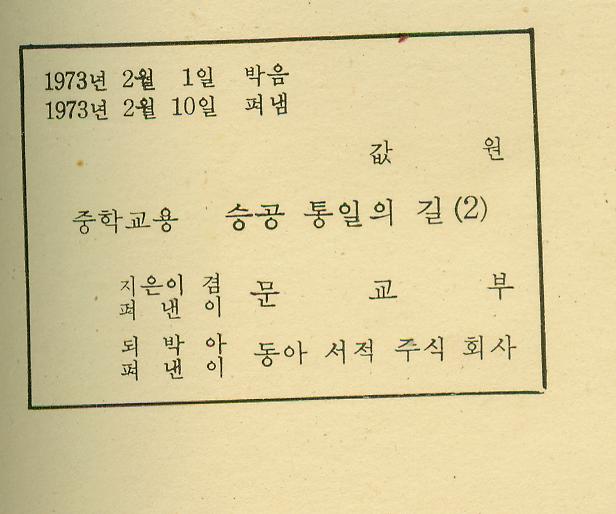 1973년 2월 1일 박음
1973년 2월 10일 펴냄
값 원
중학교용 승공 통일의 길 (2)
지은이 겸
펴 낸 이 문 교 부
되 박 아
펴 낸 이 동아 서적 주식 회사